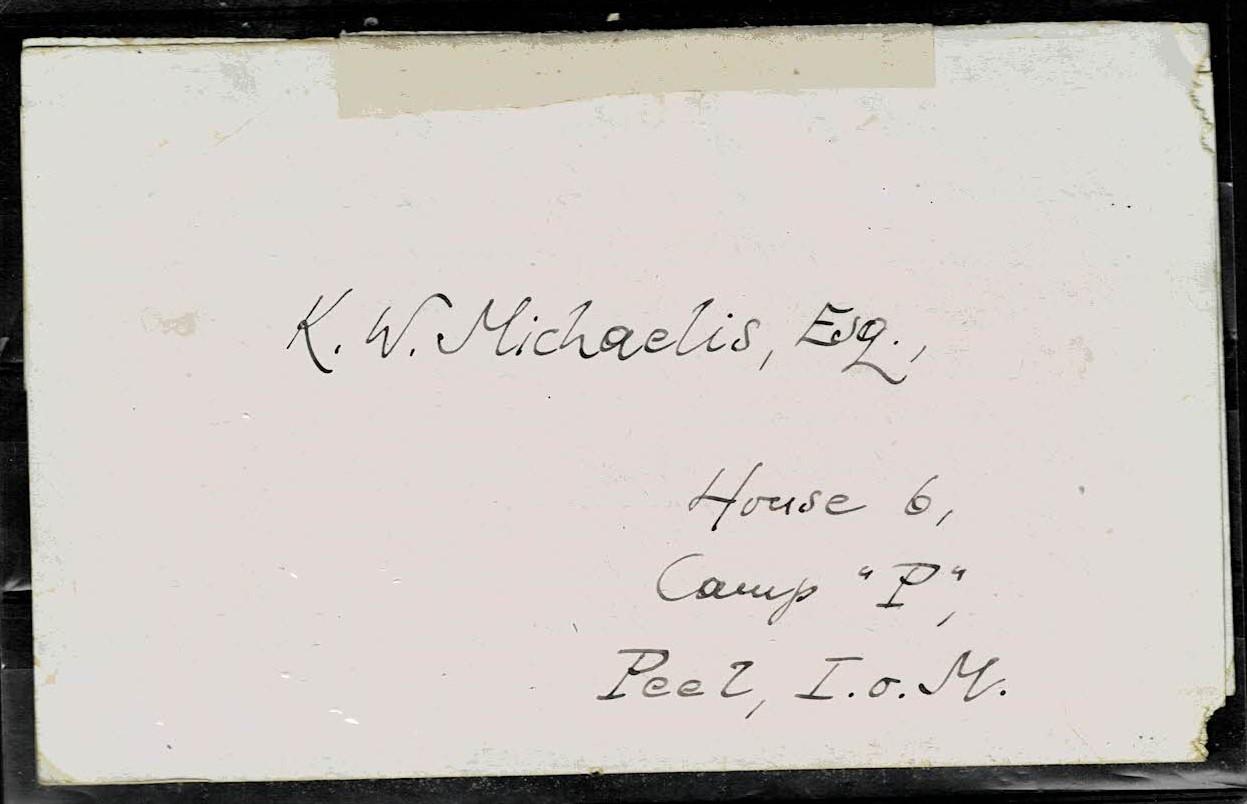 K. W. Michaelis, Esq.,
House 6,
Camp "P",
Peel, I.o.M.